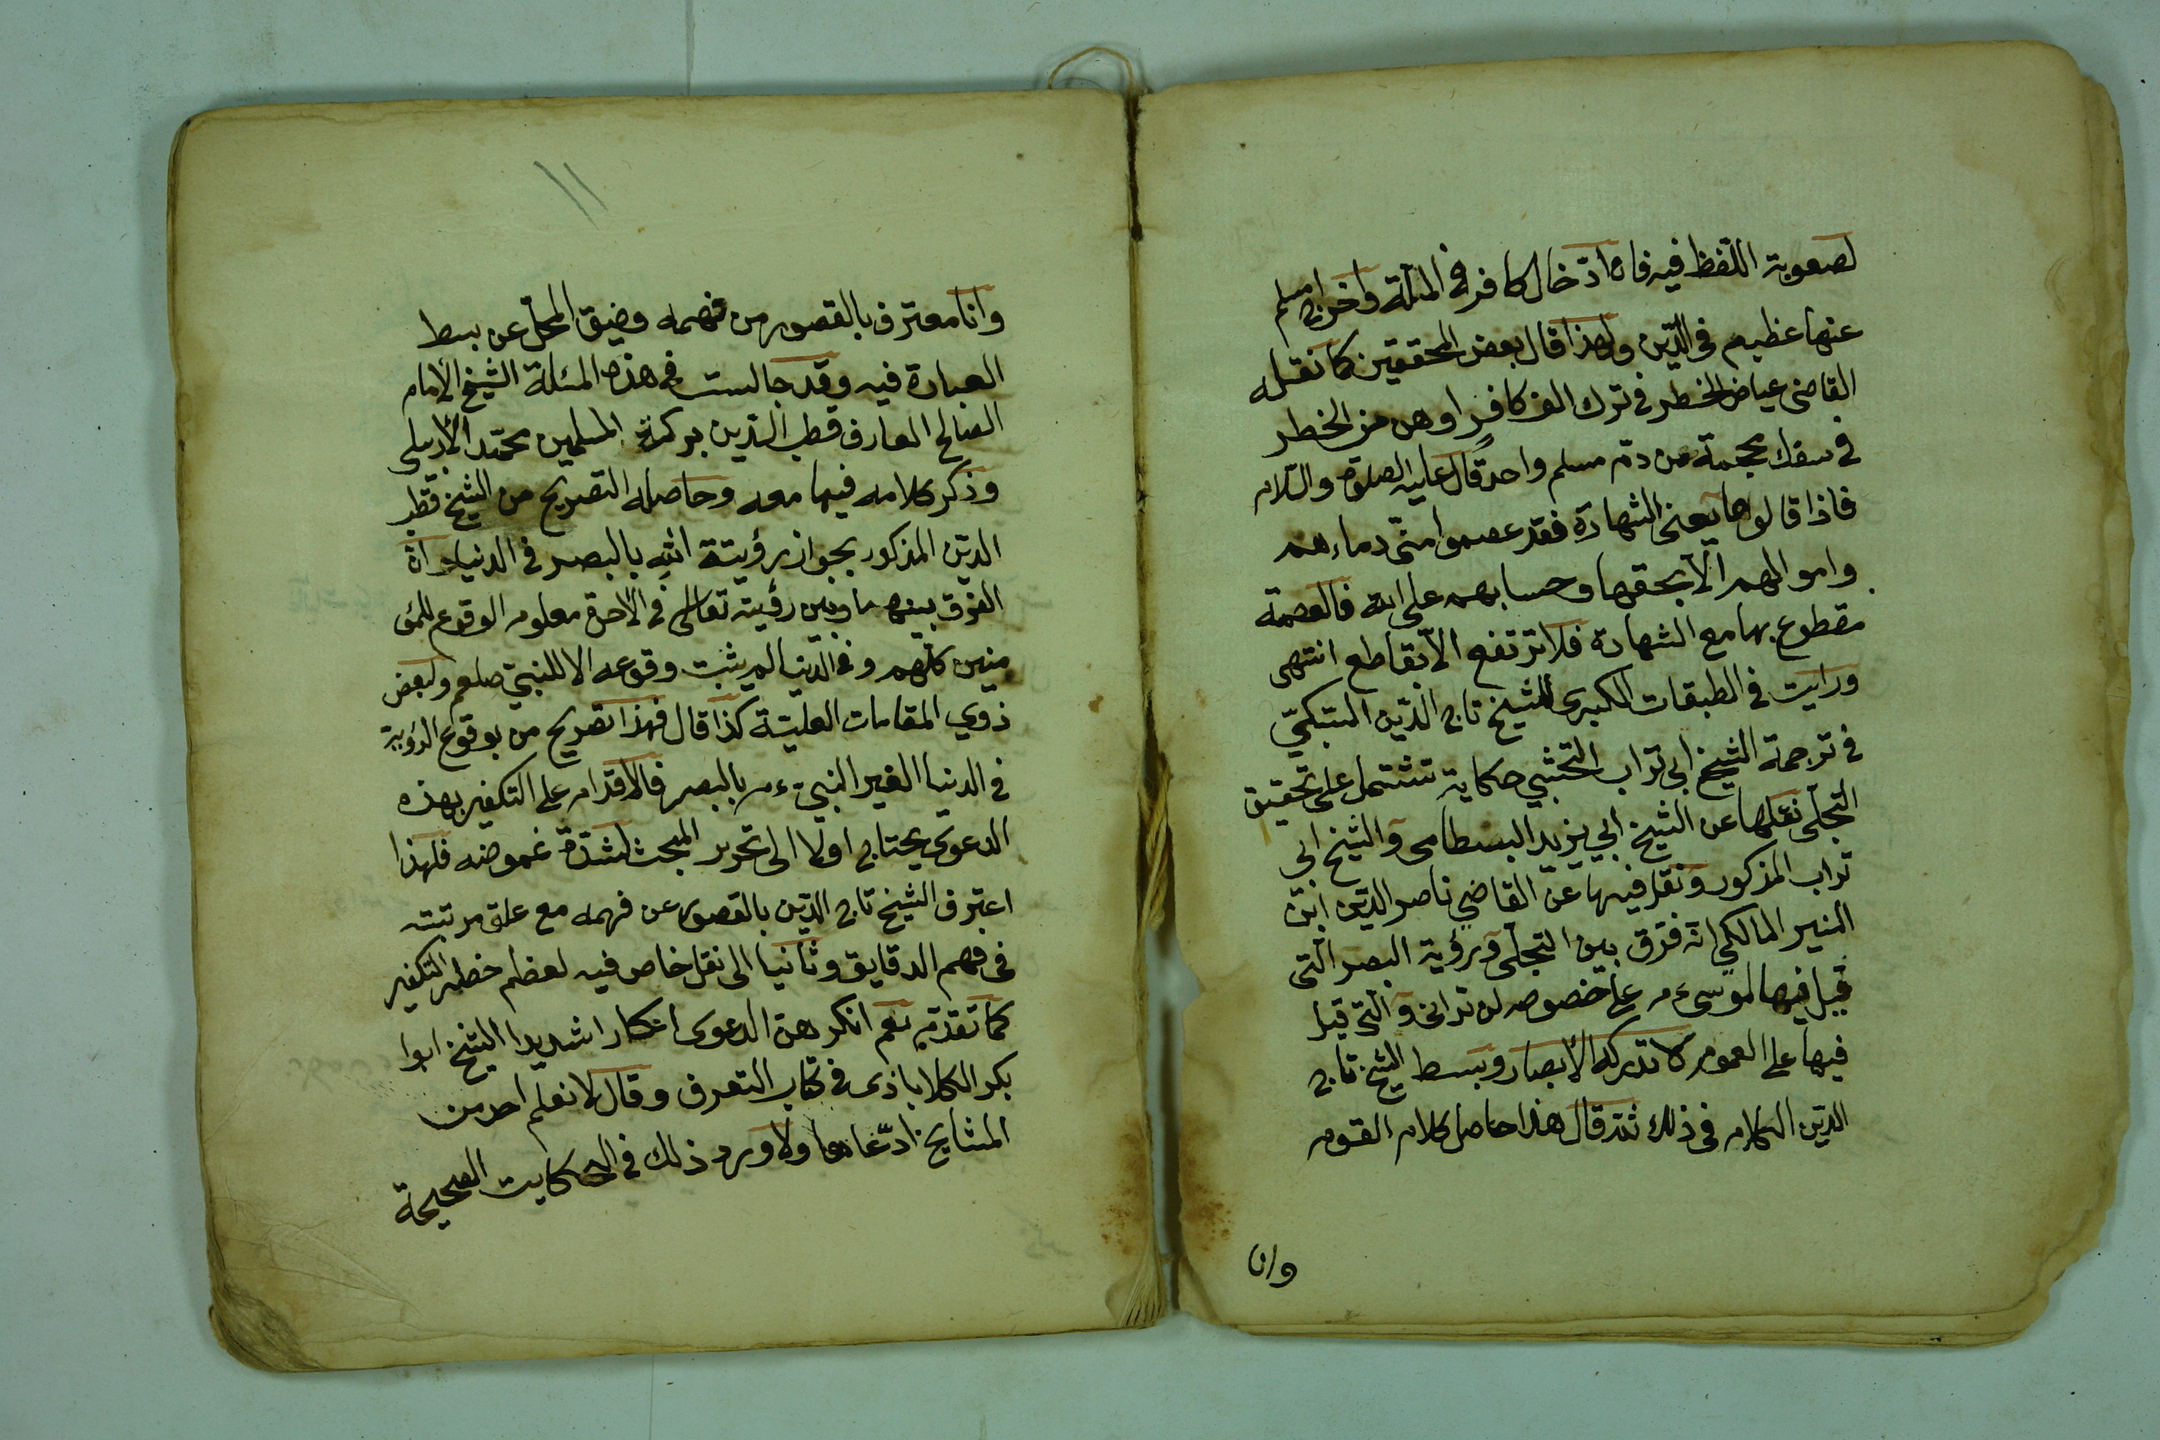 لصعوبة اللفظ فيه فان ادخال كافر في الملة واخراج مسلم
عنها عظيم في الدين ولهذا قال بعض المحققين كما نقله
القاضى عياض الخطر في ترك الف كافر اوهن من الخطر
في سفك محجمة من دم مسلم واحد قال عليه الصلوة والسلام
فاذا قالوها يعنى الشهادة فقد عصموا منى دماءهم
واموالهم الا بحقها وحسابهم على الله فالعصمة
مقطوع بها مع الشهادة فلا ترتفع الا بقاطع انتهى
ورايت في الطبقات الكبرى للشيخ تاج الدين السبكي
في ترجمة الشيخ ابي تراب النخشبي حكاية تشتمل على تحقيق
التجلى نقلها عن الشيخ ابي يزيد البسطامى والشيخ ابى
تراب المذكور ونقل فيها عن القاضي ناصر الدين ابن
المنير المالكي انه فرق بين التجلى ورؤية البصر التى
قيل فيها لموسى ءم على خصوصه لن ترانى والتى قيل
فيها على العموم لا تدركه الأبصار وبسط الشيخ تاج
الدين الكلام في ذلك ثم قال هذا حاصل كلام القوم
وانا
١١
وانا معترف بالقصور من فهمه وضيق المحل عن بسط
العبارة فيه وقد جالست في هذه المسئلة الشيخ الامام
الصالح العارف قطب الدين بركة المسلمين محمد الأردبيلى
وذكر كلامه فيها معه وحاصله التصريح من الشيخ قطب
الدين المذكور بجواز رؤيتة الله بالبصر في الدنيا وان
الفرق بينهما وبين رؤيته تعالى في الآخرة معلوم الوقوع للمؤ
منين كلهم وفي الدنيا لم يثبت وقوعه الا للنبى صلعم ولبعض
ذوي المقامات العلية كذا قال فهذا تصريح من بوقوع الرؤية
في الدنيا الغير النبى ءم بالبصر فالاقدام على التكفير بهذه
الدعوى يحتاج اولا الى تحرير المبحث لشدة غموضه فلهذا
اعترف الشيخ تاج الدين بالقصور عن فهمه مع علو مرتبته
في فهم الدقايق وثانيا الى نقل خاص فيه لعظم خطر التكفير
كما تقدم نعم انكر هذه الدعوى انكارا شديدا الشيخ ابوا
بكر الكلاباذى في كتاب التعرف وقال لا نعلم احد من
المشايخ ادعاها ولا ورد ذلك في الحكايت الصحيحة